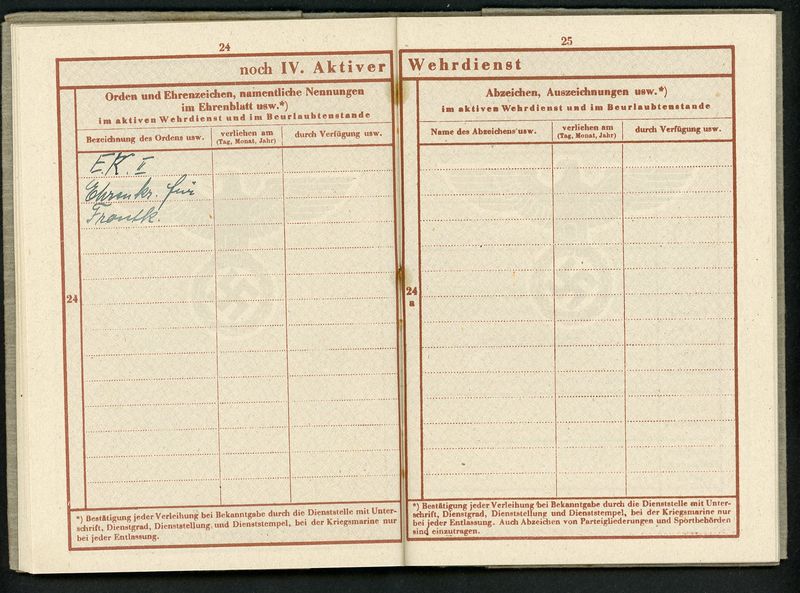 24
noch IV. Aktiver
Orden und Ehrenzeichen, namentliche Nennungen
im Ehrenblatt usw.*)
im aktiven Wehrdienst und im Beurlaubtenstande
Bezeichnung des Ordens usw.
verliehen am
(Tag, Monat, Jahr)
durch Verfügung usw.
E.K. II
Ehrenkr. für
Frontk.
24
*) Bestätigung jeder Verleihung bei Bekanntgabe durch die Dienststelle mit Unter-
schrift, Dienstgrad, Dienststellung und Dienststempel, bei der Kriegsmarine nur
bei jeder Entlassung.
25
Wehrdienst
Abzeichen, Auszeichnungen usw.*)
im aktiven Wehrdienst und im Beurlaubtenstande
Name des Abzeichens usw.
verliehen am
(Tag, Monat, Jahr)
durch Verfügung usw.
24
a
*) Bestätigung jeder Verleihung bei Bekanntgabe durch die Dienststelle mit Unter-
schrift, Dienstgrad, Dienststellung und Dienststempel, bei der Kriegsmarine nur
bei jeder Entlassung. Auch Abzeichen von Parteigliederungen und Sportbehörden
sind einzutragen.